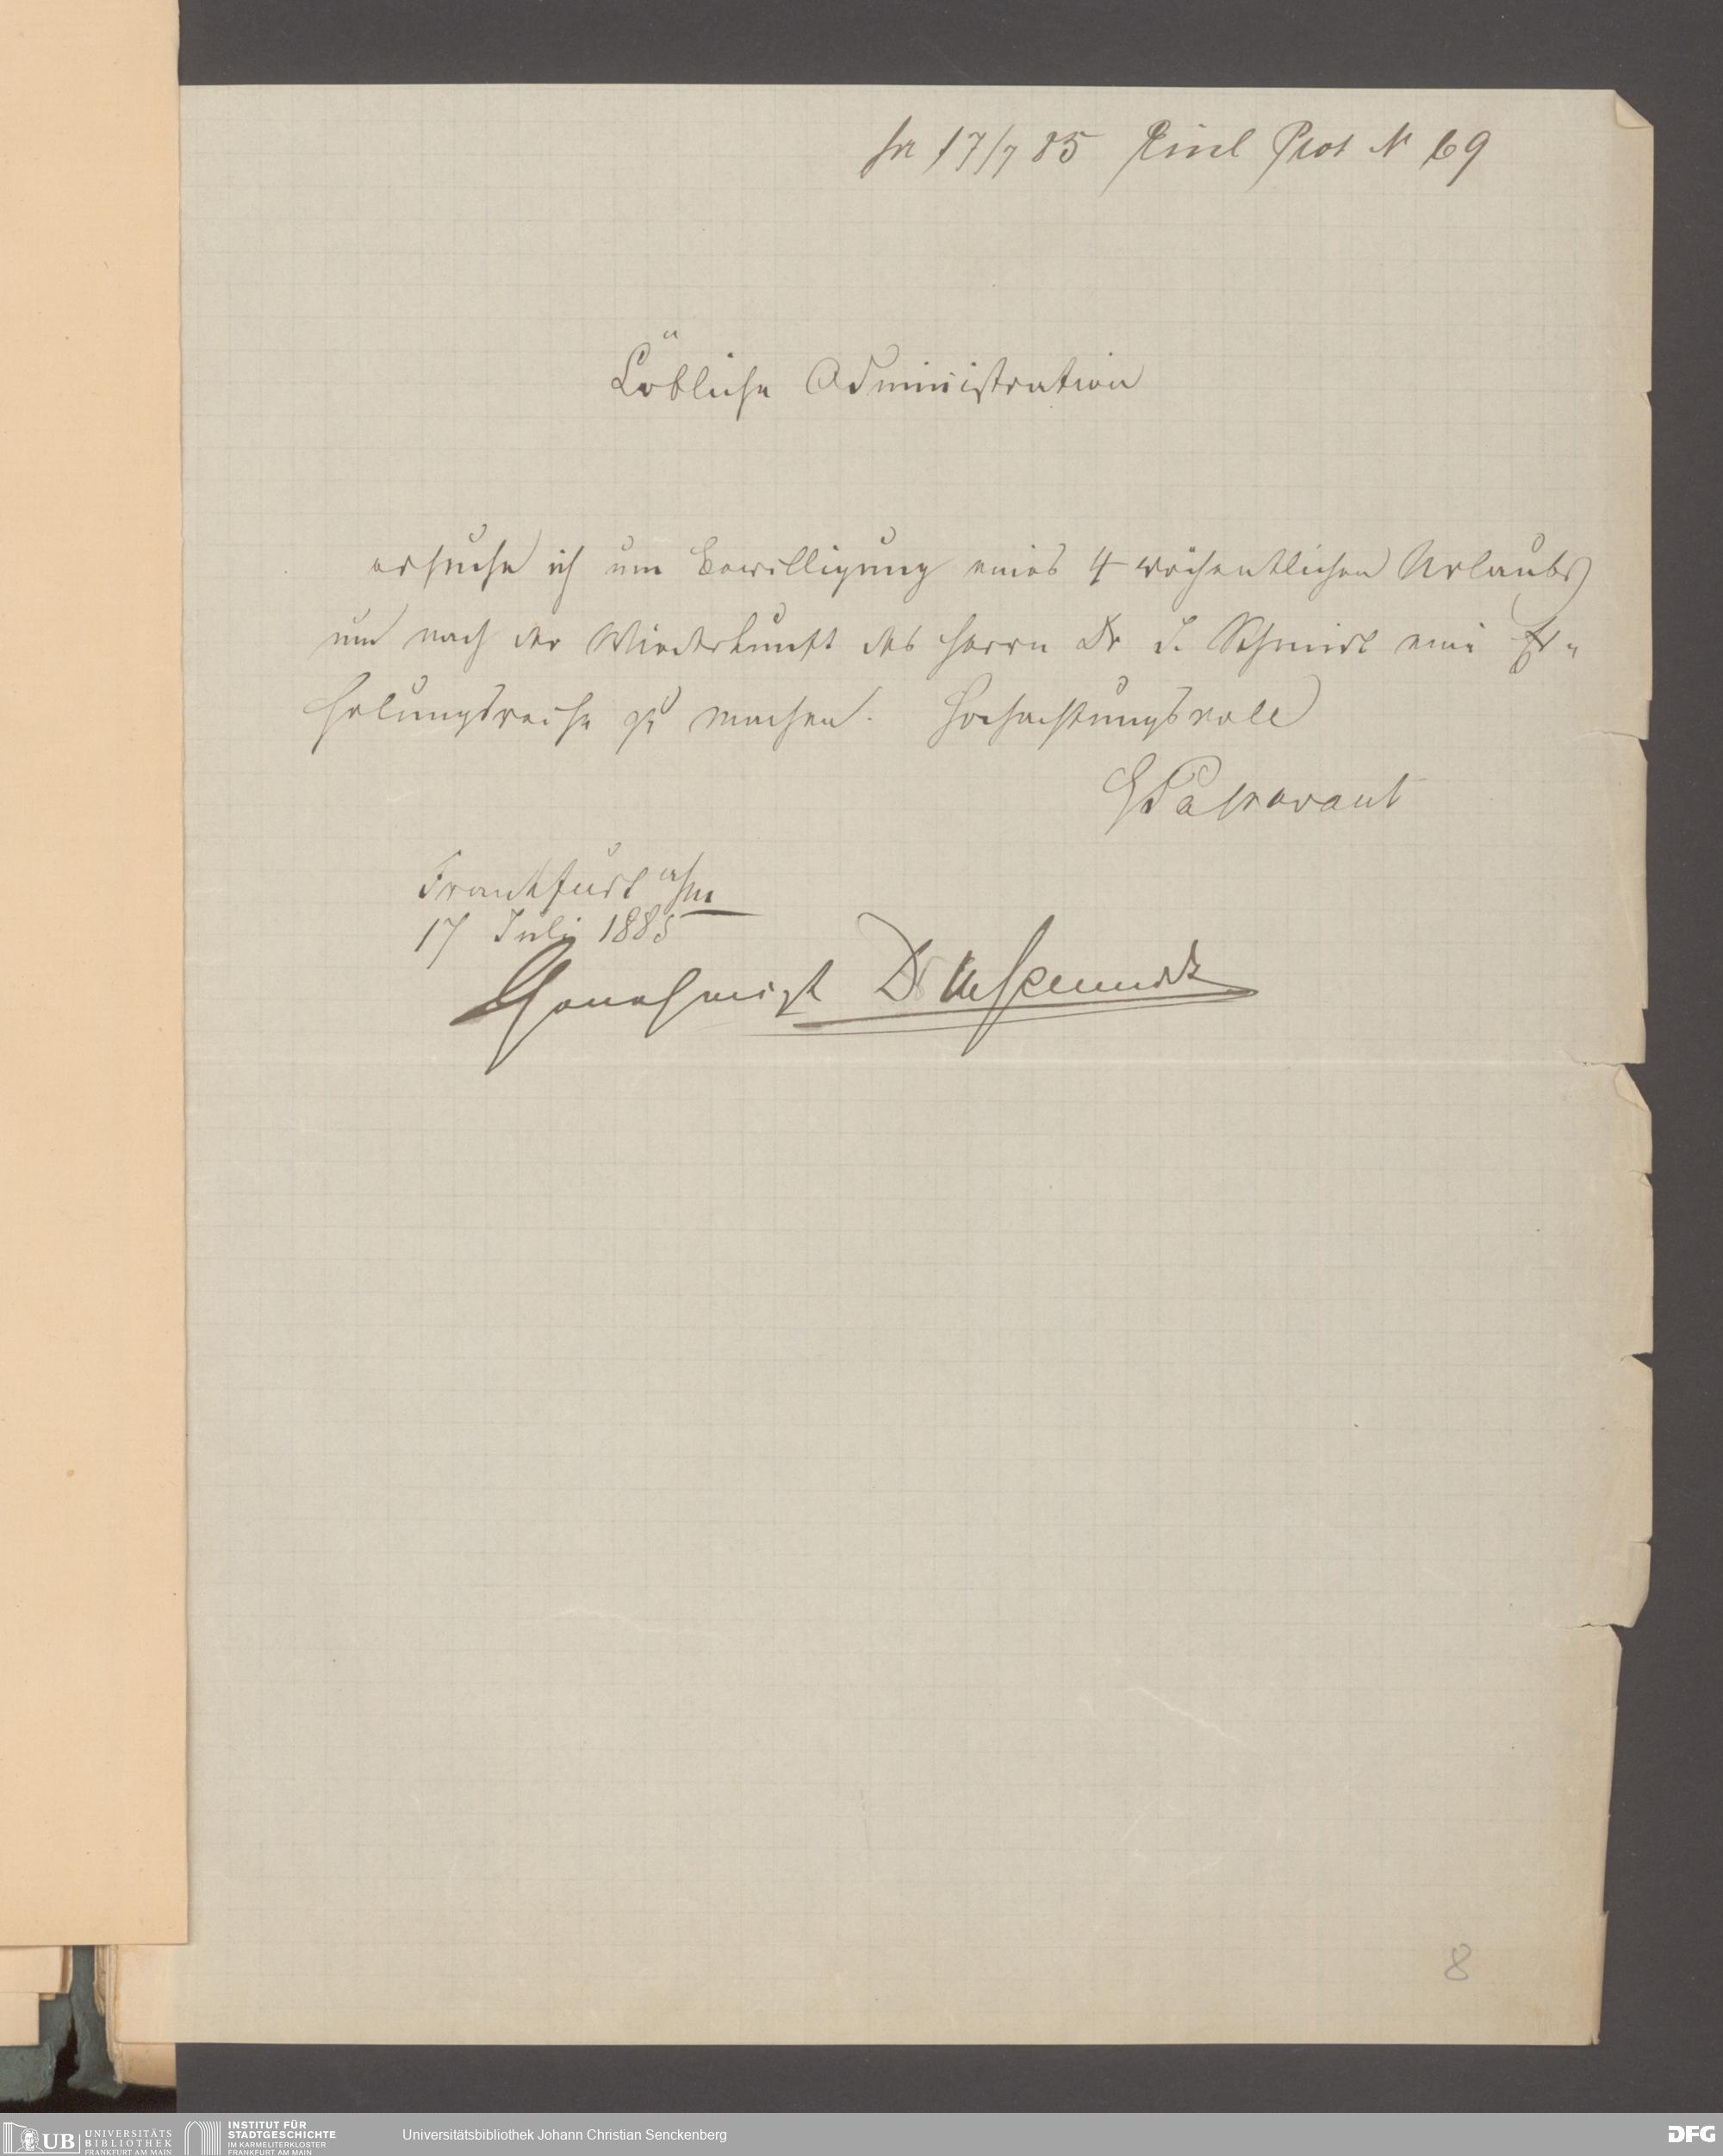 pr 17/7 85 Einl Prot N 69
Löbliche Administration
ersuche ich um Bewilligung eines 4 wöchentlichen Urlaubs
um nach der Wiederkunft des Herrn Dr J. Schmidt eine Er-
holungsreise zu machen. Hochachtungsvoll
GPassavant
Frankfurt a/m
17 Juli 1885
Genehmigt Dr Schmidt
8
UB UNIVERSITÄTS
BIBLIOTHEK
FRANKFURT AM MAIN
INSTITUT FÜR
STADTGESCHICHTE
IM KARMELITERKLOSTER
FRANKFURT AM MAIN
Universitätsbibliothek Johann Christian Senckenberg
DFG